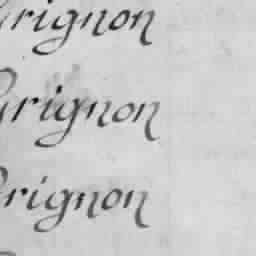 Grignon
Grignon
Grignon